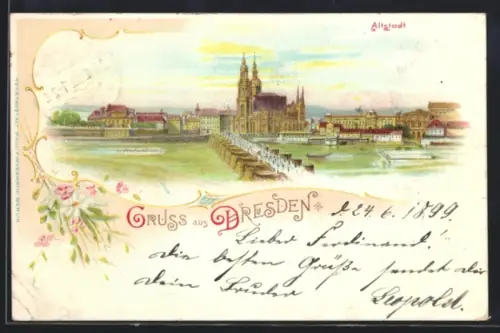 Altstadt
GRUSS aus DRESDEN
d. 24. 6. 1899.
Lieber Ferdinand!
Die besten Grüße sendet Dir
Dein Bruder
Leopold.